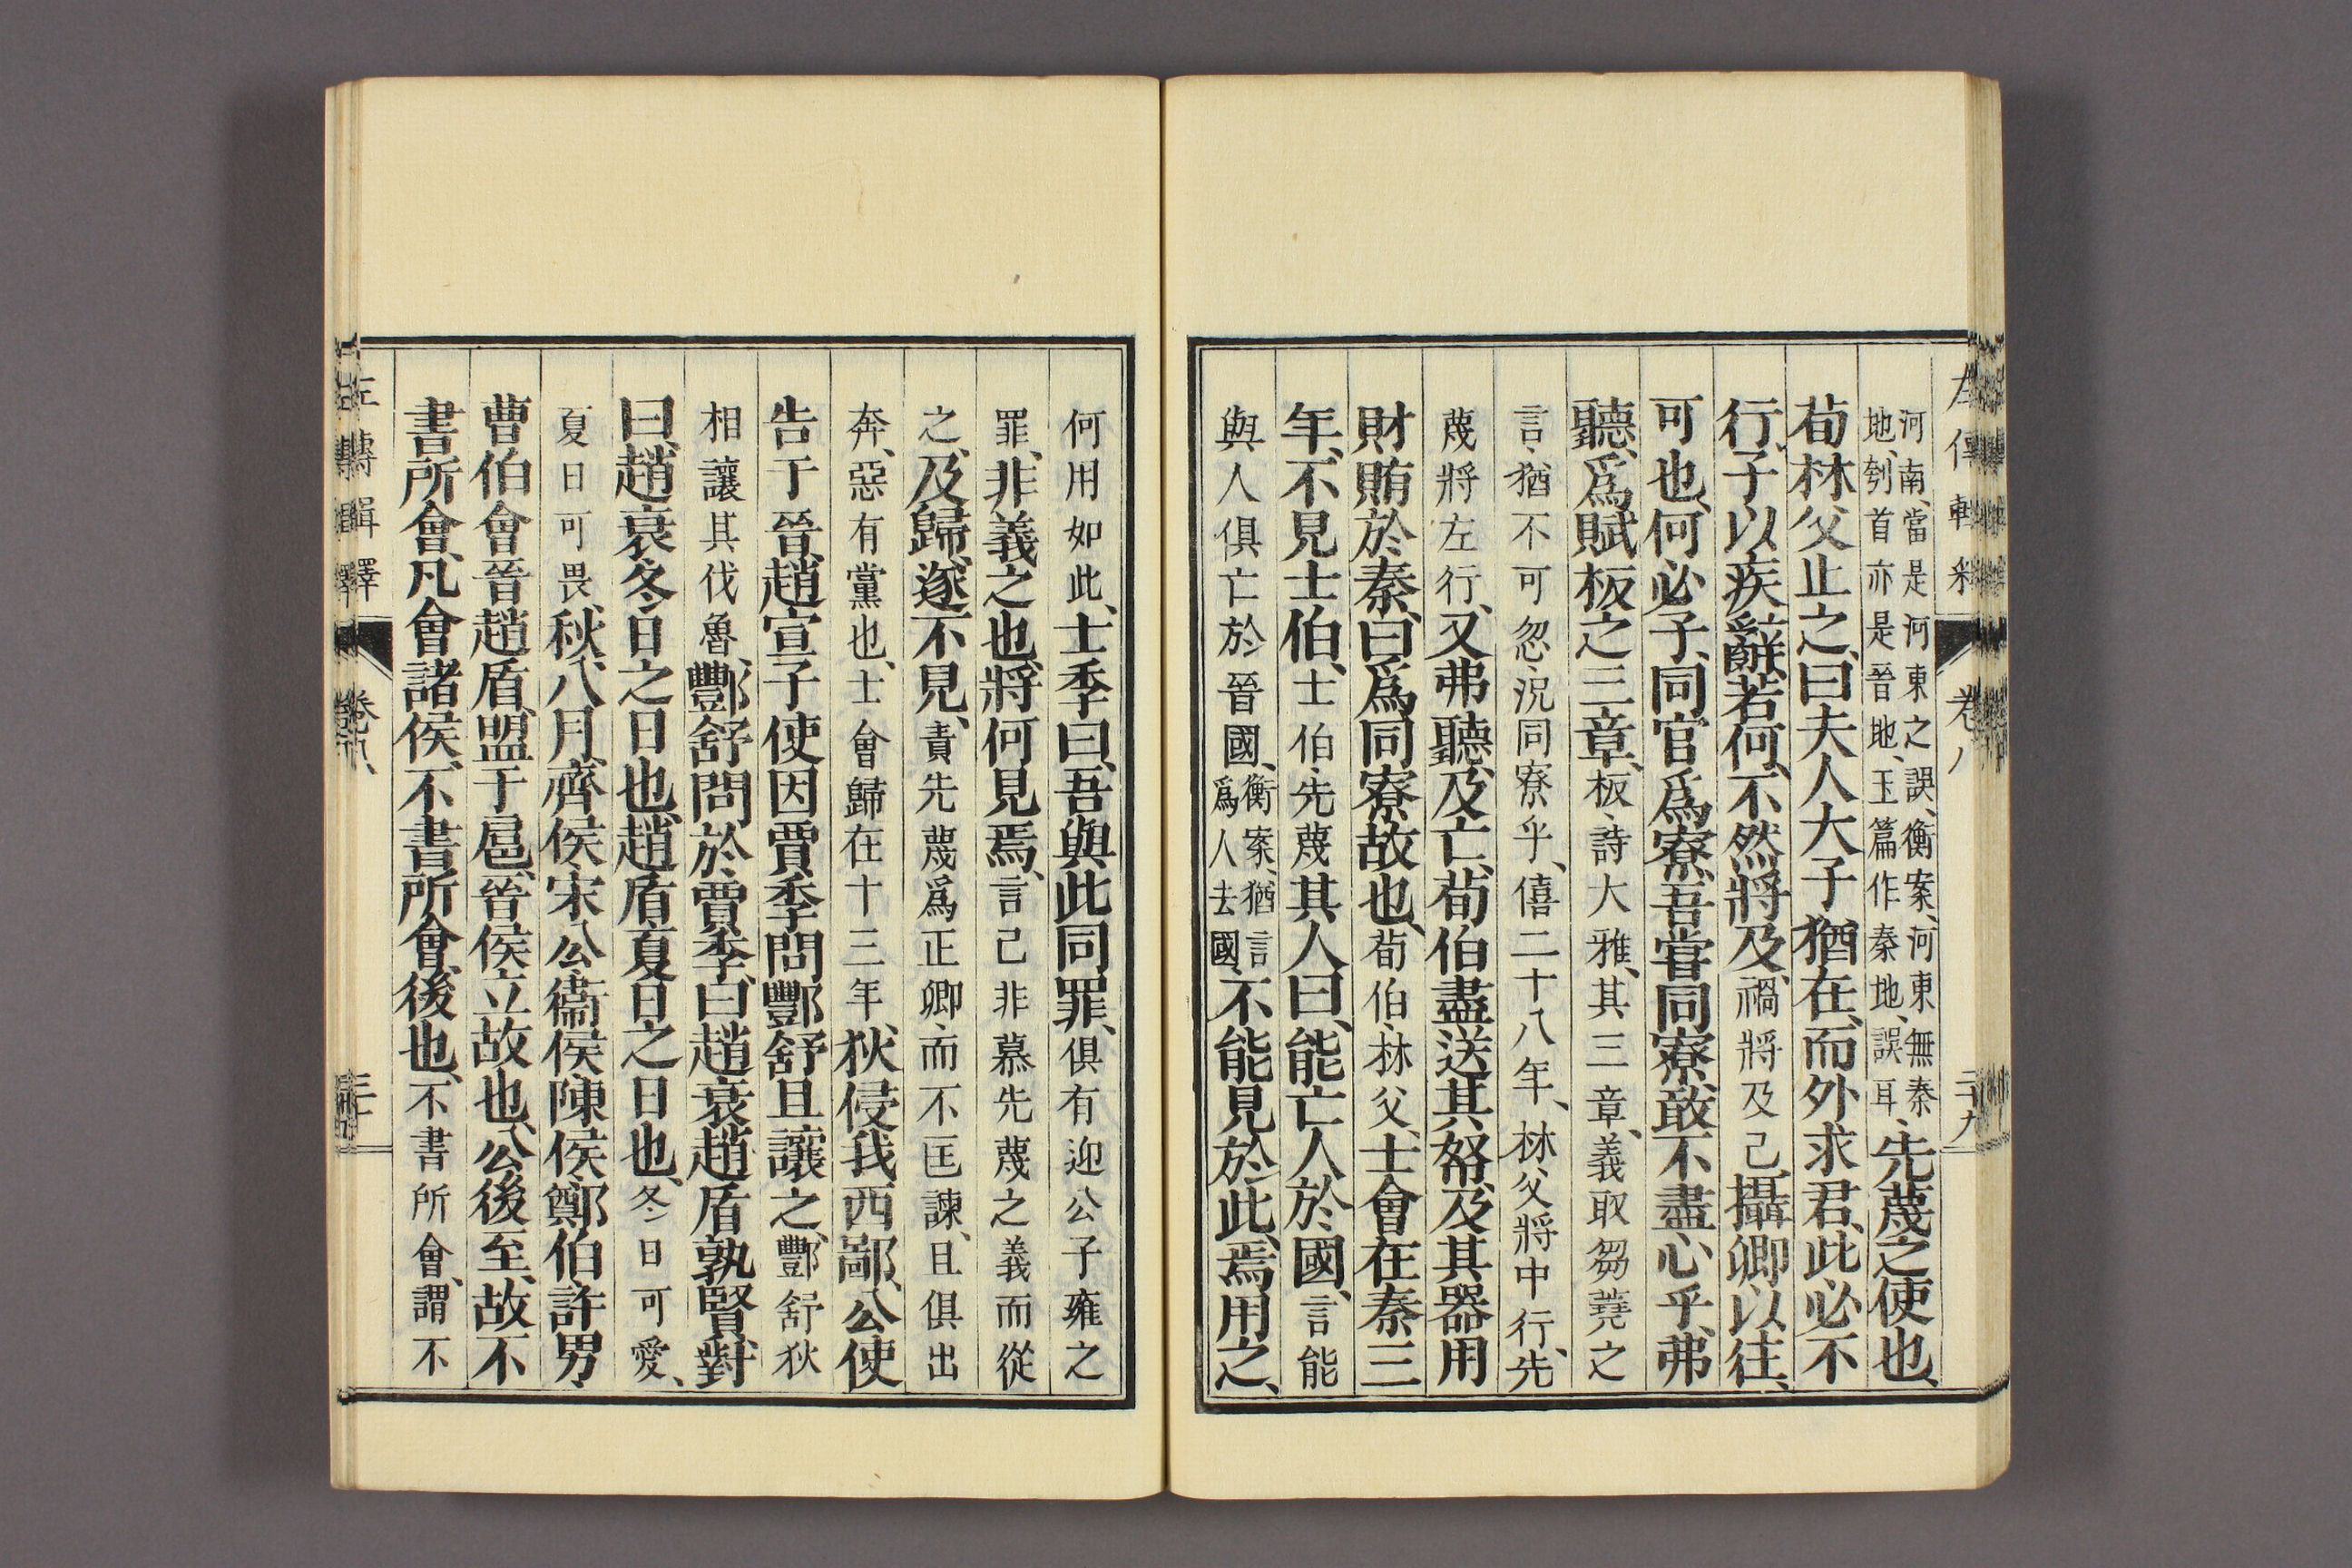 河南、當是河東之誤、衡案、河東無秦
地、刳首亦是晉地、玉篇作秦地、誤耳、先蔑之使也、
荀林父止之、曰、夫人大子猶在、而外求君、此必不
行、子以疾辭、若何、不然、將及、禍將及己、攝卿以往、
可也、何必子、同官爲寮、吾嘗同寮、敢不盡心乎、弗
聽、爲賦板之三章、板、詩大雅、其三章、義取芻蕘之
言、猶不可忽、況同寮乎、僖二十八年、林父將中行、先
蔑將左行、又弗聽、及亡、荀伯盡送其帑、及其器用
財賄於秦、曰、爲同寮故也、荀伯、林父、士會在秦三
年、不見士伯、士伯、先蔑、其人曰、能亡人於國、言能
與人俱亡於晉國、衡案、猶言
爲人去國、不能見於此、焉用之、
左傳輯釋 卷八 二十九
何用如此、士季曰、吾與此同罪、俱有迎公子雍之
罪、非義之也、將何見焉、言己非慕先蔑之義而從
之、及歸、遂不見、責先蔑爲正卿、而不匡諫、且俱出
奔、惡有黨也、士會歸在十三年、狄侵我西鄙、公使
告于晉、趙宣子使因賈季問酆舒、且讓之、酆舒狄
相、讓其伐魯、酆舒問於賈季、曰、趙衰趙盾孰賢、對
曰、趙衰冬日之日也、趙盾夏日之日也、冬日可愛、
夏日可畏、秋、八月、齊侯宋公衞侯陳侯鄭伯許男
曹伯會晉趙盾、盟于扈、晉侯立故也、公後至、故不
書所會、凡會諸侯、不書所會、後也、不書所會、謂不
左傳輯釋 卷八